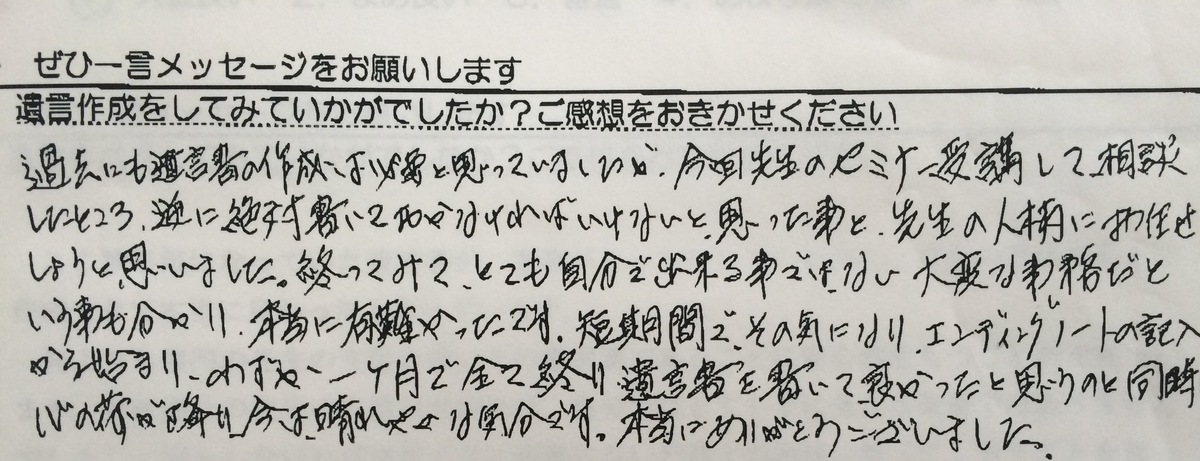 ぜひ一言メッセージをお願いします
遺言作成をしてみていかがでしたか？ご感想をおきかせください
過去にも遺言書の作成は必要と思っていましたが、今回先生のセミナー受講して、相談
したところ、逆に絶対書いておかなければいけないと、思った事と、先生の人柄にお任せ
しようと思いました。終ってみて、とても自分で出来る事ではない大変な事務だと
いう事も分かり、本当に有難かったです。短期間で、その気になり、エンディングノートの記入
から始まり、わずか一ヶ月で全て終り遺言書を書いて良かったと思うのと同時
心の荷が降り、今は晴れやかな気分です。本当にありがとうございました。